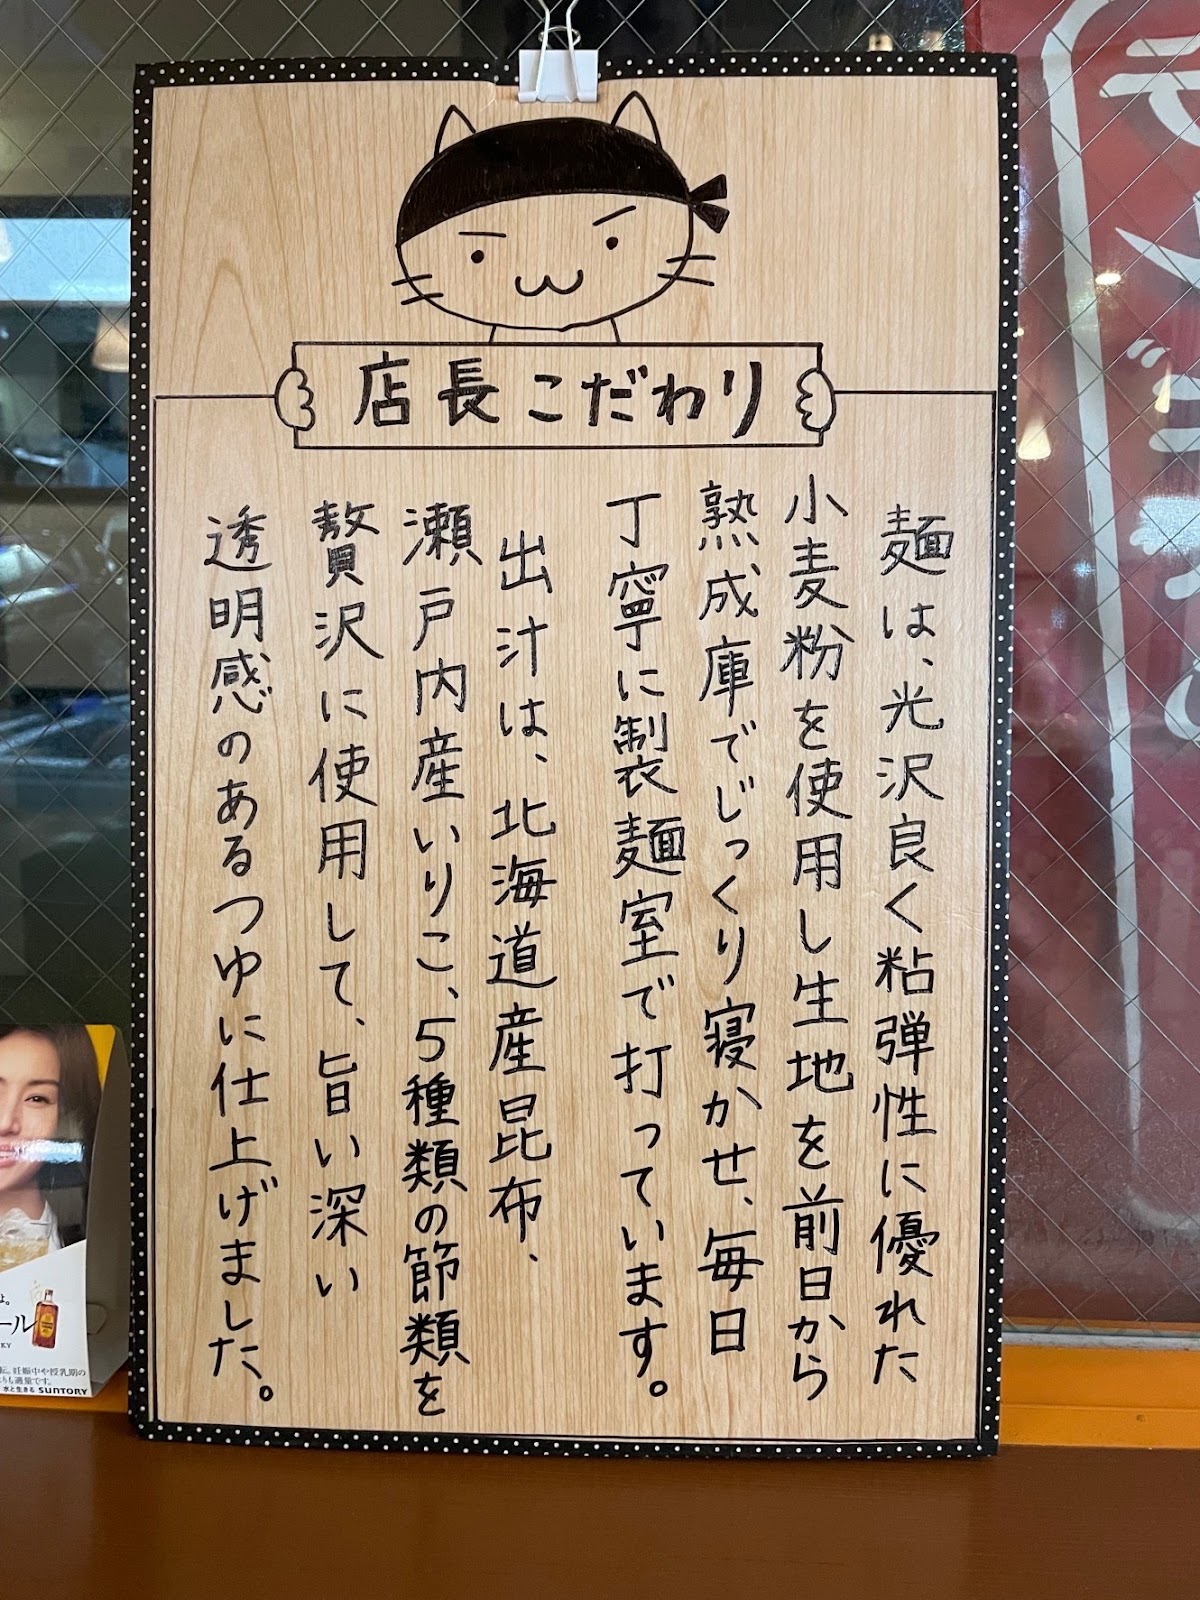 店長こだわり
麺は、光沢良く粘弾性に優れた
小麦粉を使用し生地を前日から
熟成庫でじっくり寝かせ、毎日
丁寧に製麺室で打っています。
出汁は、北海道産昆布、
瀬戸内産いりこ、5種類の節類を
贅沢に使用して、旨い深い
透明感のあるつゆに仕上げました。
水と生きる SUNTORY